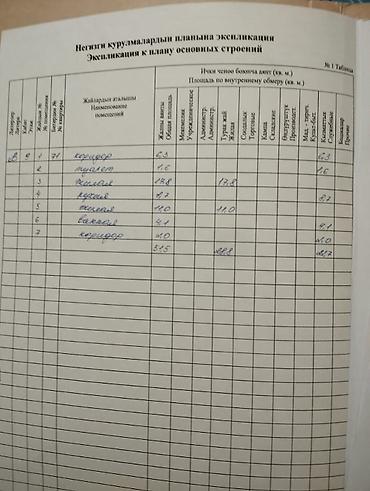 Негизги курулмалардын планына экспликация
Экспликация к плану основных строений
№ 1 Таблица
Ички ченөө боюнча аянт (кв. м.)
Площадь по внутреннему обмеру (кв. м.)
Литерлер
Литера
Кабат
Этаж
Жайдын №
№ помещения
Батирдин №
№ квартиры
Жайлардын аталышы
Наименование
помещений
Жалпы аянты
Общая площадь
Мекемелик
Учрежденческие
Администр.
Администр.
Турак жай
Жилая
Соодалык
Торговые
Кампа
Складские
Өндүрүштүк
Производст.
Мед. - тирич.
Культ-быт.
Кызматтык
Служебные
Башкалар
Прочие
1 71 коридор 6.3 6.3
2 туалет 1.6 1.6
3 жилая 17.8 17.8
4 кухня 8.7 8.7
5 жилая 11.0 11.0
6 ванная 4.1 4.1
7 коридор 2.0 2.0
51.5 28.8 22.7